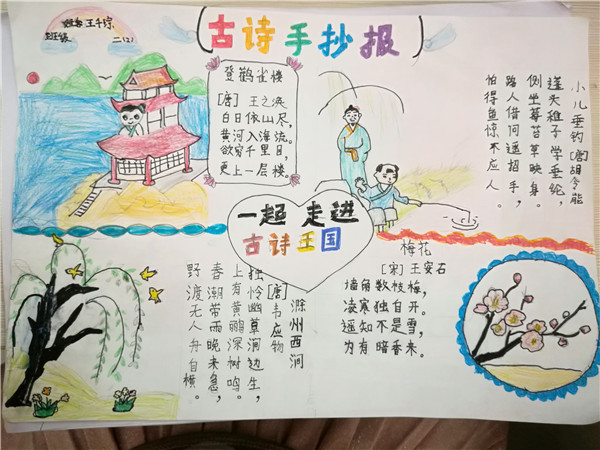 姓名 王千
班级 二(2)
古诗手抄报
登鹳雀楼
[唐] 王之涣
白日依山尽,
黄河入海流。
欲穷千里目,
更上一层楼。
小儿垂钓 [唐] 胡令能
蓬头稚子学垂纶,
侧坐莓苔草映身。
路人借问遥招手,
怕得鱼惊不应人。
一起 走进
古诗王国
滁州西涧
[唐] 韦应物
独怜幽草涧边生,
上有黄鹂深树鸣。
春潮带雨晚来急,
野渡无人舟自横。
梅花
[宋] 王安石
墙角数枝梅,
凌寒独自开。
遥知不是雪,
为有暗香来。